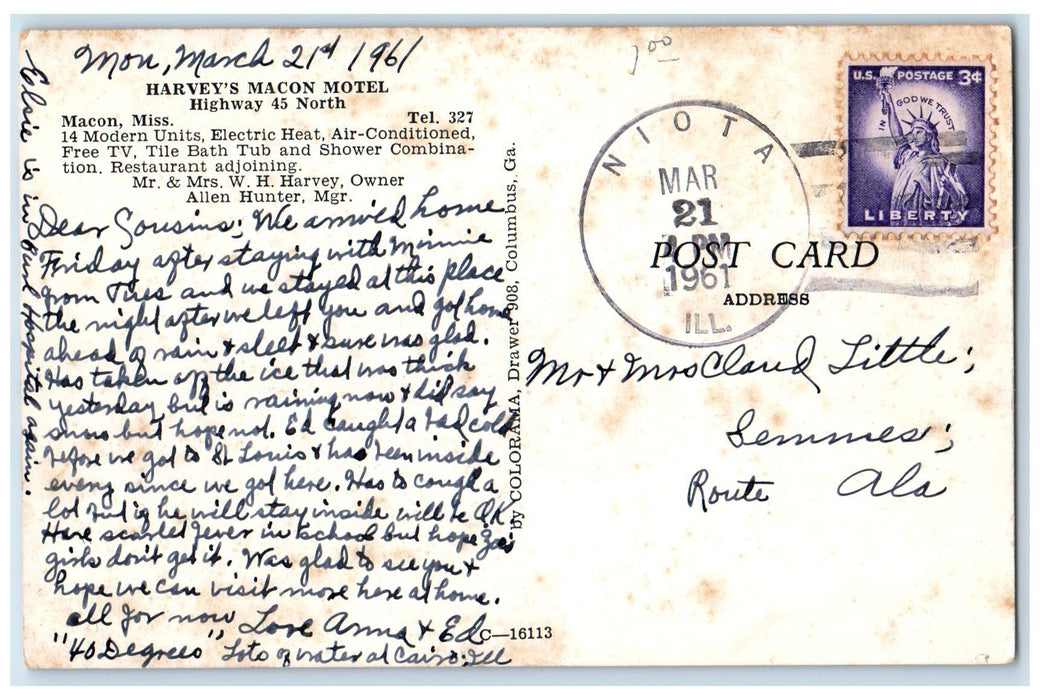 Mon, March 21st 1961
HARVEY'S MACON MOTEL
Highway 45 North
Macon, Miss. Tel. 327
14 Modern Units, Electric Heat, Air-Conditioned,
Free TV, Tile Bath Tub and Shower Combina-
tion. Restaurant adjoining.
Mr. & Mrs. W. H. Harvey, Owner
Allen Hunter, Mgr.
Dear Cousins; We arrived home
Friday after staying with Minnie
from Tues and we stayed at this place
the night after we left you and got home
ahead of rain & sleet & sure was glad.
Has taken off the ice that was thick
yesterday but is raining now & did say
snow but hope not. Ed caught a bad cold
before we got to St Louis & has been inside
every since we got here. Has to cough a
lot but if he will stay inside will be OK
Have scarlet fever in school but hope
girls don't get it. Was glad to see you &
hope we can visit more here at home.
all for now Love Anna & Ed
"40 Degrees" Lots of water at Cairo, Ill
Elsie is in Hospital again.
by COLORAMA, Drawer 908, Columbus, Ga.
C—16113
7 00
NIOTA
MAR
21
PM
1961
ILL.
U.S. POSTAGE 3¢
IN GOD WE TRUST
LIBERTY
POST CARD
ADDRESS
Mr & Mrs Claud Little;
Semmes;
Route Ala